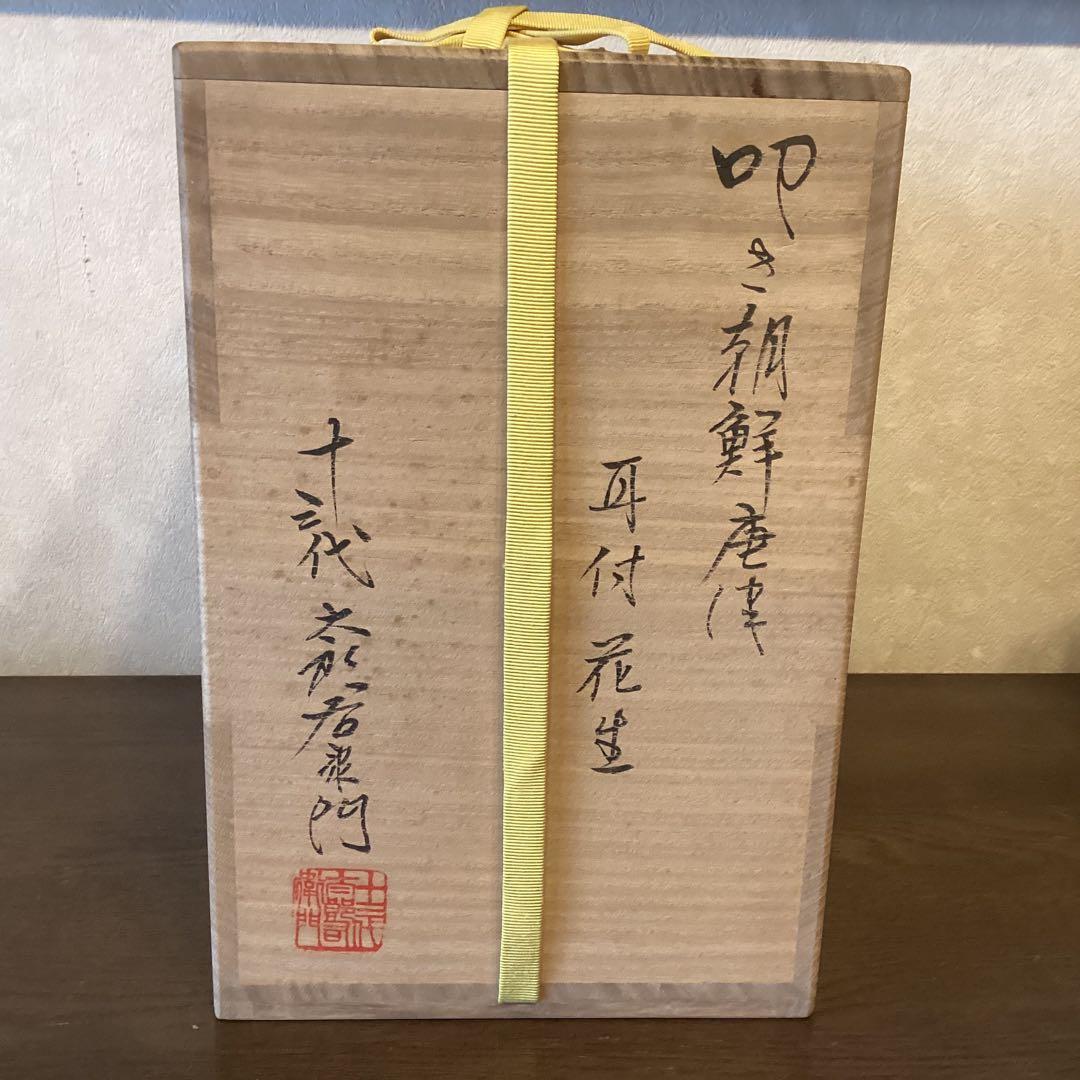 叩き朝鮮唐津
耳付花生
十三代太郎右衛門